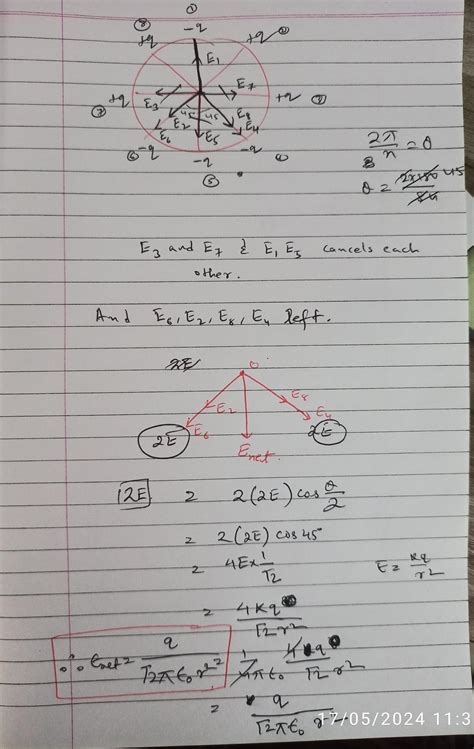 ①
⑧ -q
+q +q ②
E₁
+q E₇ +q
③ E₃ 45 45 E₈ ⑦
E₂ E₄
E₆ E₅
-q -q
⑥ -q ④
⑤
2π/n = θ
8
θ = 2×180/8 45
E₃ and E₇ & E₁ E₅ cancels each
other.
And E₆, E₂, E₈, E₄ left.
2E O
E₂ E₈
E₆ E₄
2E 2E
Enet.
|2E| = 2(2E) cos θ/2
= 2(2E) cos 45°
= 4E × 1/√2 E = kq/r²
= 4kq/√2r²
∴ Enet = q/√2πε₀r² 1/4πε₀ 4q/√2r²
= q/√2πε₀r
17/05/2024 11:3